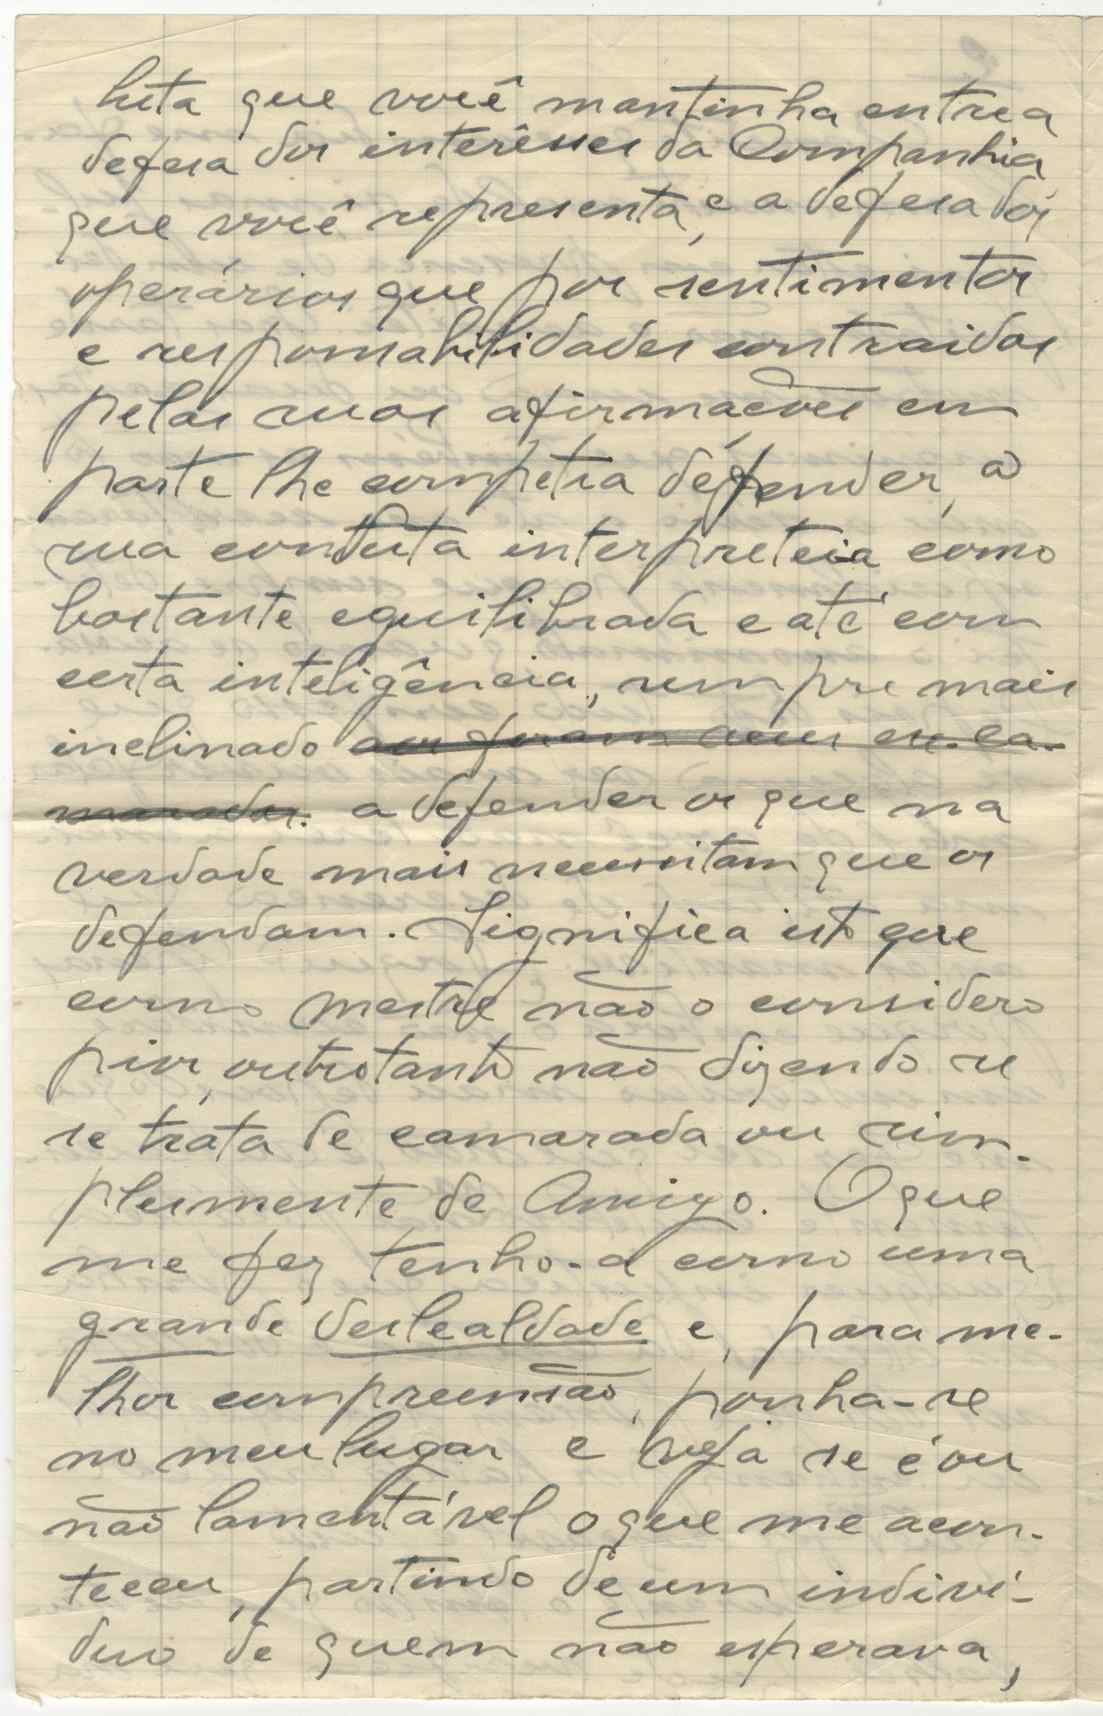 luta que você mantinha entre a
defesa dos interêsses da Companhia
que você representa, e a defesa dos
operários que por sentimentos
e responsabilidades contraidas
pelas suas afirmações em
parte lhe competia defender, a
sua conduta interpreteia como
bastante equilibrada e até com
certa inteligência, sempre mais
inclinado
a defender os que na
verdade mais necessitam que os
defendam. Significa isto que
como mestre não o considero
pior, outrotanto não dizendo se
se trata de camarada ou sim-
plesmente de Amigo. O que
me fez tenho-a como uma
grande deslealdade e, para me-
lhor compreensão, ponha-se
no meu lugar e veja se é ou
não lamentável o que me acon-
teceu, partindo de um indiví-
duo de quem não esperava,